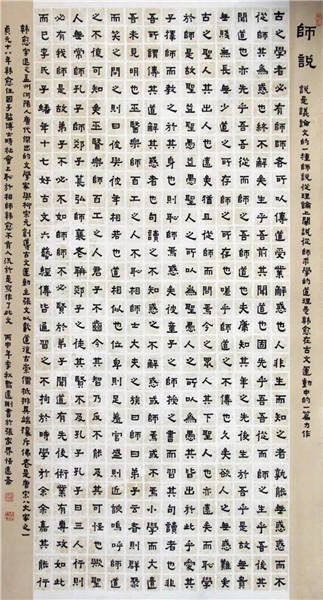 師說
說是議論文的一種師說從理論上闡說從師求學的道理是韓愈在古文運動中的一篇力作
古之學者必有師師者所以傳道受業解惑也人非生而知之者孰能無惑惑而不
從師其為惑也終不解矣生乎吾前其聞道也固先乎吾吾從而師之生乎吾後其
聞道也亦先乎吾吾從而師之吾師道也夫庸知其年之先後生於吾乎是故無貴無
賤無長無少道之所存師之所存也嗟乎師道之不傳也久矣欲人之無惑也難矣
古之聖人其出人也遠矣猶且從師而問焉今之眾人其下聖人也亦遠矣而恥學於師
是故聖益聖愚益愚聖人之所以為聖愚人之所以為愚其皆出於此乎愛其
子擇師而教之於其身也則恥師焉惑矣彼童子之師授之書而習其句讀者也非吾
所謂傳其道解其惑者也句讀之不知惑之不解或師焉或不焉小學而大遺
吾未見其明也巫醫樂師百工之人不恥相師士大夫之族曰師曰弟子云者則群聚
而笑之問之則曰彼與彼年相若也道相似也位卑則足羞官盛則近諛嗚呼師道
之不復可知矣巫醫樂師百工之人君子不齒今其智乃反不能及其可怪也歟聖
人無常師孔子師郯子萇弘師襄老聃郯子之徒其賢不及孔子孔子曰三人行則
必有我師是故弟子不必不如師師不必賢於弟子聞道有先後術業有專攻如此
而已李氏子蟠年十七好古文六藝經傳皆通習之不拘於時學於余余嘉其能行
韓愈字退之孟州河陽人唐代傑出的文學家與柳宗元創導古文運動主張文以載道復古崇儒抵排異端攘斥佛老是唐宋八大家之一
貞元十八年韓愈任國子監博士時社會上恥於相師韓愈不肯入流於是寫作了此文 丙申年季秋 書於張家界悟道齋